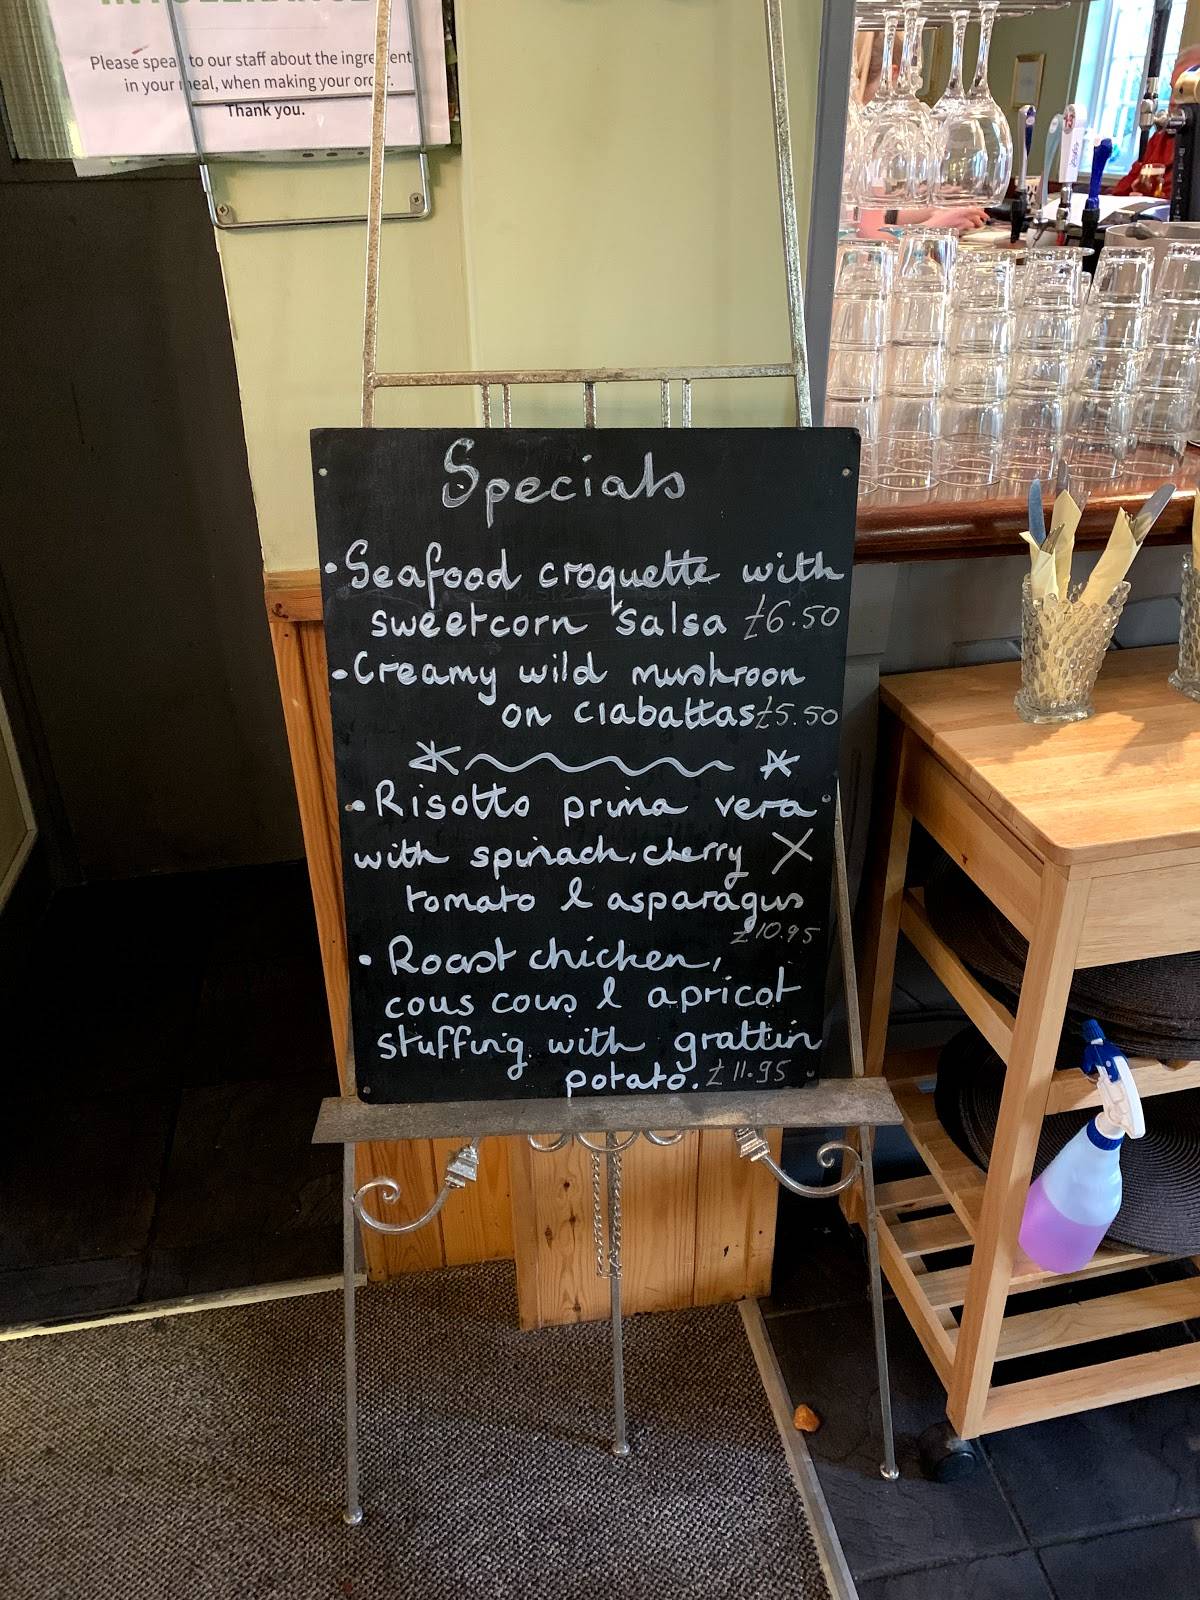 Please speak to our staff about the ingredient
in your meal, when making your order.
Thank you.
Specials
• Seafood croquette with
sweetcorn salsa £6.50
• Creamy wild mushroon
on ciabattas £5.50
• Risotto prima vera
with spinach, cherry X
tomato & asparagus
£10.95
• Roast chicken,
cous cous & apricot
stuffing with grattin
potato. £11.95